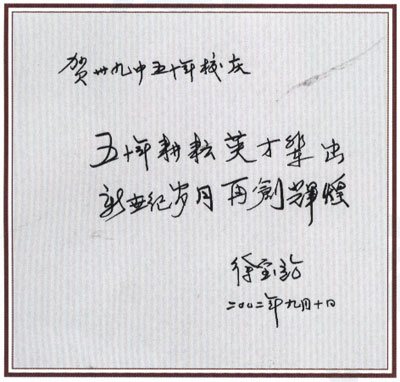 贺卅九中五十年校庆
五十年耕耘英才辈出
新世纪岁月再创辉煌
徐宝
二〇〇二年九月十日